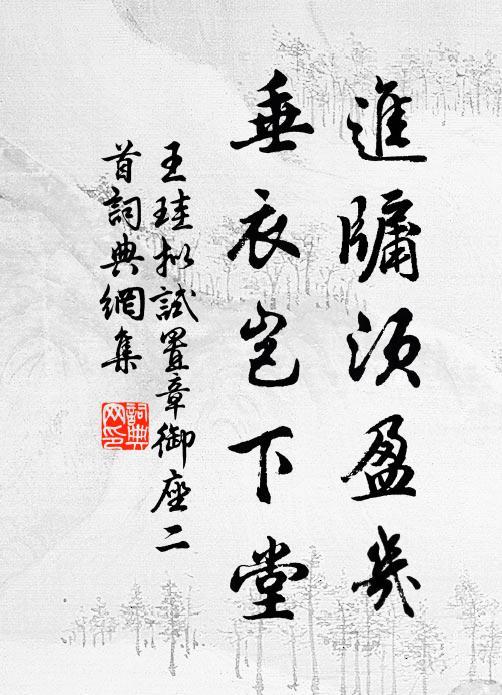 進牖須盈幾
垂衣豈下堂
王珪拟試置章御座二
首詞典網集
詞典
网印